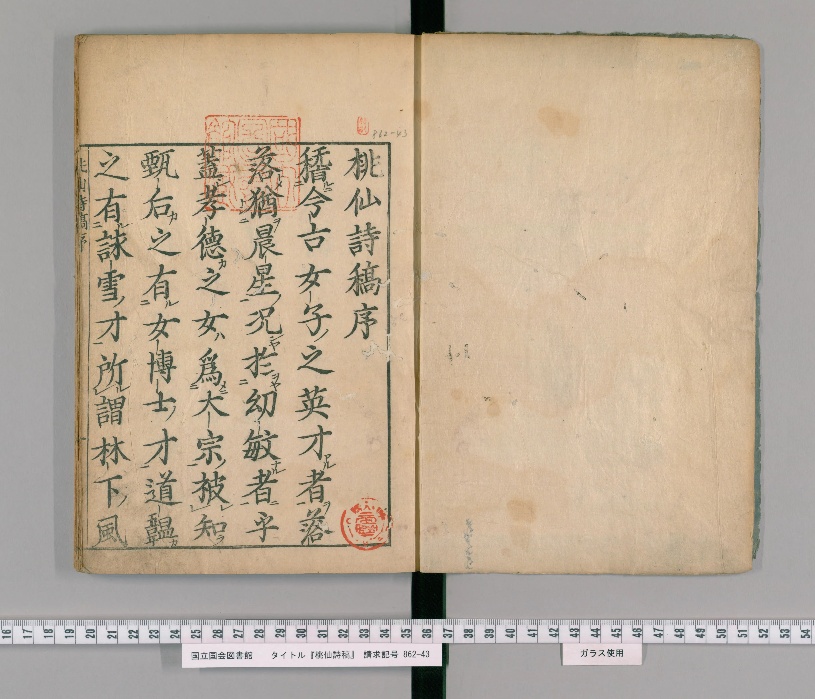 桃仙詩稿序
稽今古女子之英才者落
落猶晨星况於幼敏者乎
蓋孝德之女爲大宗被知
甄后之有女博士才道韞
之有詠雪才所謂林下風
862-43
16 17 18 19 20 21 22 23 24 25 26 27 28 29 30 31 32 33 34 35 36 37 38 39 40 41 42 43 44 45 46 47 48 49 50 51 52 53 54
国立国会図書館 タイトル『桃仙詩稿』 請求記号 862-43
ガラス使用